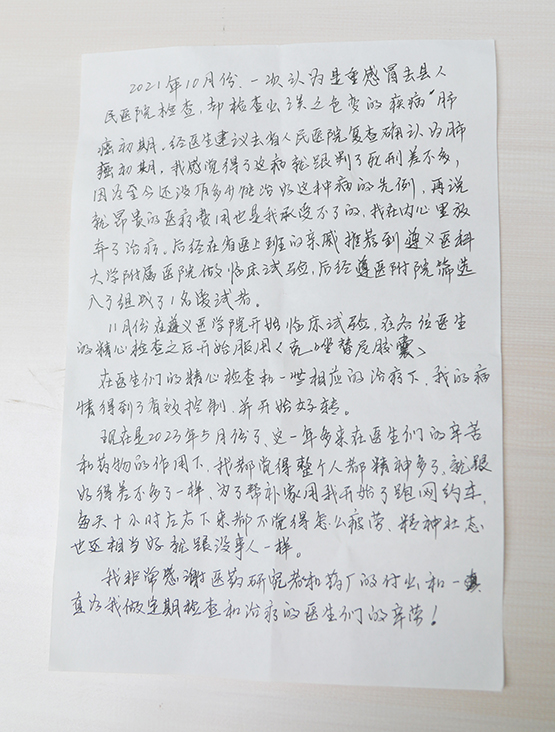 2021年10月份，一次认为是重感冒去县人
民医院检查，却检查出谈之色变的疾病“肺
癌初期。经医生建议去省人民医院复查确认为肺
癌初期，我感觉得了这病就跟判了死刑差不多，
因为至今还没有多少能治好这种病的先例，再说
就昂贵的医疗费用也是我承受不了的，我在内心里放
弃了治疗。后经在省医上班的亲戚推荐到遵义医科
大学附属医院做临床试验，后经遵医附院筛选
入了组成了1名受试者。
11月份在遵义医学院开始临床试验，在各位医生
的精心检查之后开始服用《克唑替尼胶囊》
在医生们的精心检查和一些相应的治疗下，我的病
情得到了有效控制，并开始好转。
现在是2023年5月份了，这一年多来在医生们的辛苦
和药物的作用下，我都觉得整个人都精神多了，就跟
好得差不多了一样，为了帮补家用我开始了跑网约车，
每天十小时左右下来都不觉得怎么疲劳，精神状态
也还相当好就跟没事人一样。
我非常感谢医药研究者和药厂的付出和一
直为我做定期检查和治疗的医生们的辛劳！